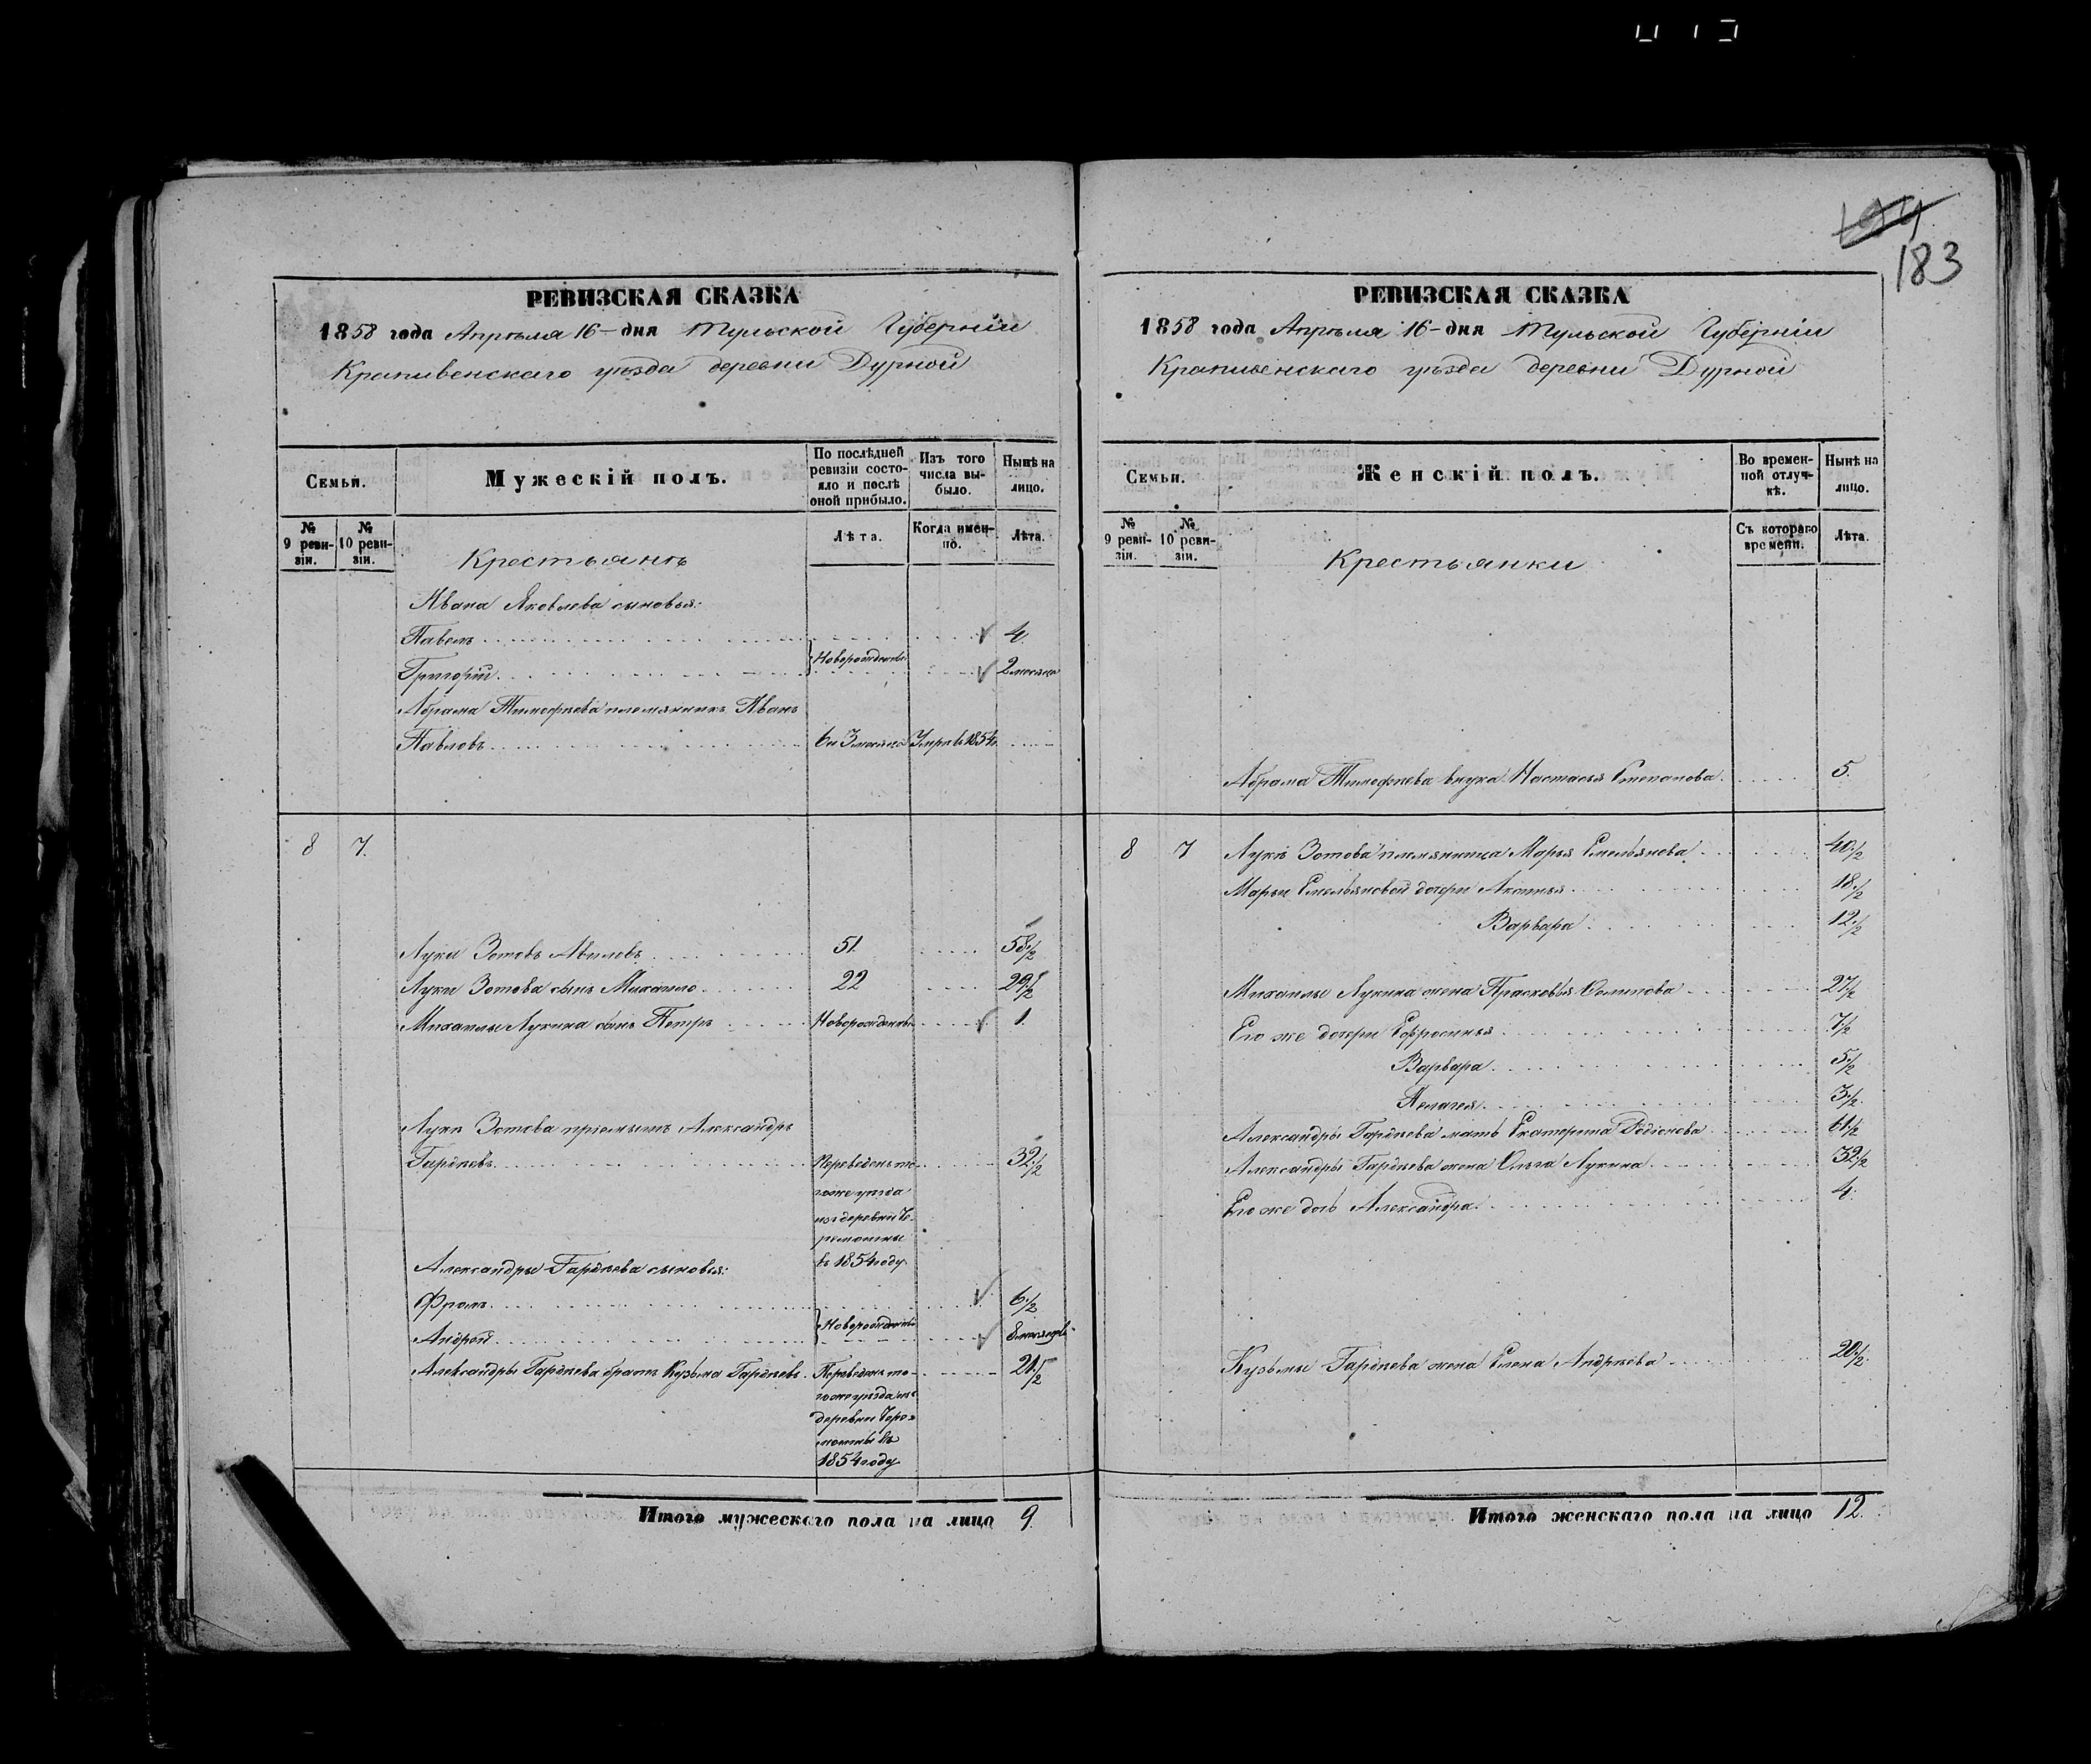 194
183
РЕВИЗСКАЯ СКАЗКА
1858 года Апрѣля 16 дня Тульской Губерніи
Крапивенскаго уѣзда деревни Дурной
Семьи.
Мужескій полъ.
По послѣдней ревизіи состояло и послѣ оной прибыло.
Изъ того числа выбыло.
Нынѣ на лицо.
№ 9 ревизіи.
№ 10 ревизіи.
Лѣта.
Когда именно.
Лѣта.
Крестьянъ
Ивана Яковлева сыновья:
Павелъ 4
Новорожденные
Григорій 2 месяца
Абрама Тимофѣева племянникъ Иванъ
Павловъ 6 и 3 месяца Умръ въ 1854
8 7.
Лука Зотовъ 51 58 1/2
Луки Зотова сынъ Михайло 22 29 1/2
Михаилы Лукина сынъ Петръ Новорожденный 1.
Луки Зотова пріемышъ Александръ
Гардѣевъ 32 1/2
Переведенъ то-
гоже уѣзда
изъ деревни Че-
ремошны
въ 1854 году
Александры Гардѣева сыновья:
Фролъ 6 1/2
Новорожденные
Андрей 8 месяцевъ
Александры Гардѣева братъ Кузьма Гардѣевъ 21 1/2
Переведенъ то-
гоже уѣзда изъ
деревни Чере-
мошны въ
1854 году
Итого мужескаго пола на лицо 9.
РЕВИЗСКАЯ СКАЗКА
1858 года Апрѣля 16 дня Тульской Губерніи
Крапивенскаго уѣзда деревни Дурной
Семьи.
Женскій полъ.
Во временной отлучкѣ.
Нынѣ на лицо.
№ 9 ревизіи.
№ 10 ревизіи.
Съ котораго времени.
Лѣта.
Крестьянки
Абрама Тимофѣева внука Настасья Степанова 5.
8 7 Луки Зотова племянница Марья Емельянова 40 1/2
Марьи Емельяновой дочери Аксинья 18 1/2
Варвара 12 1/2
Михаилы Лукина жена Прасковья Осипова 27 1/2
Его же дочери Ефросинья 7 1/2
Варвара 5 1/2
Пелагея 3 1/2
Александры Гардѣева мать Екатерина Родіонова 61 1/2
Александры Гардѣева жена Ольга Лукина 32 1/2
Его же дочь Александра 4.
Кузьмы Гардѣева жена Елена Андрѣева 20 1/2
Итого женскаго пола на лицо 12.